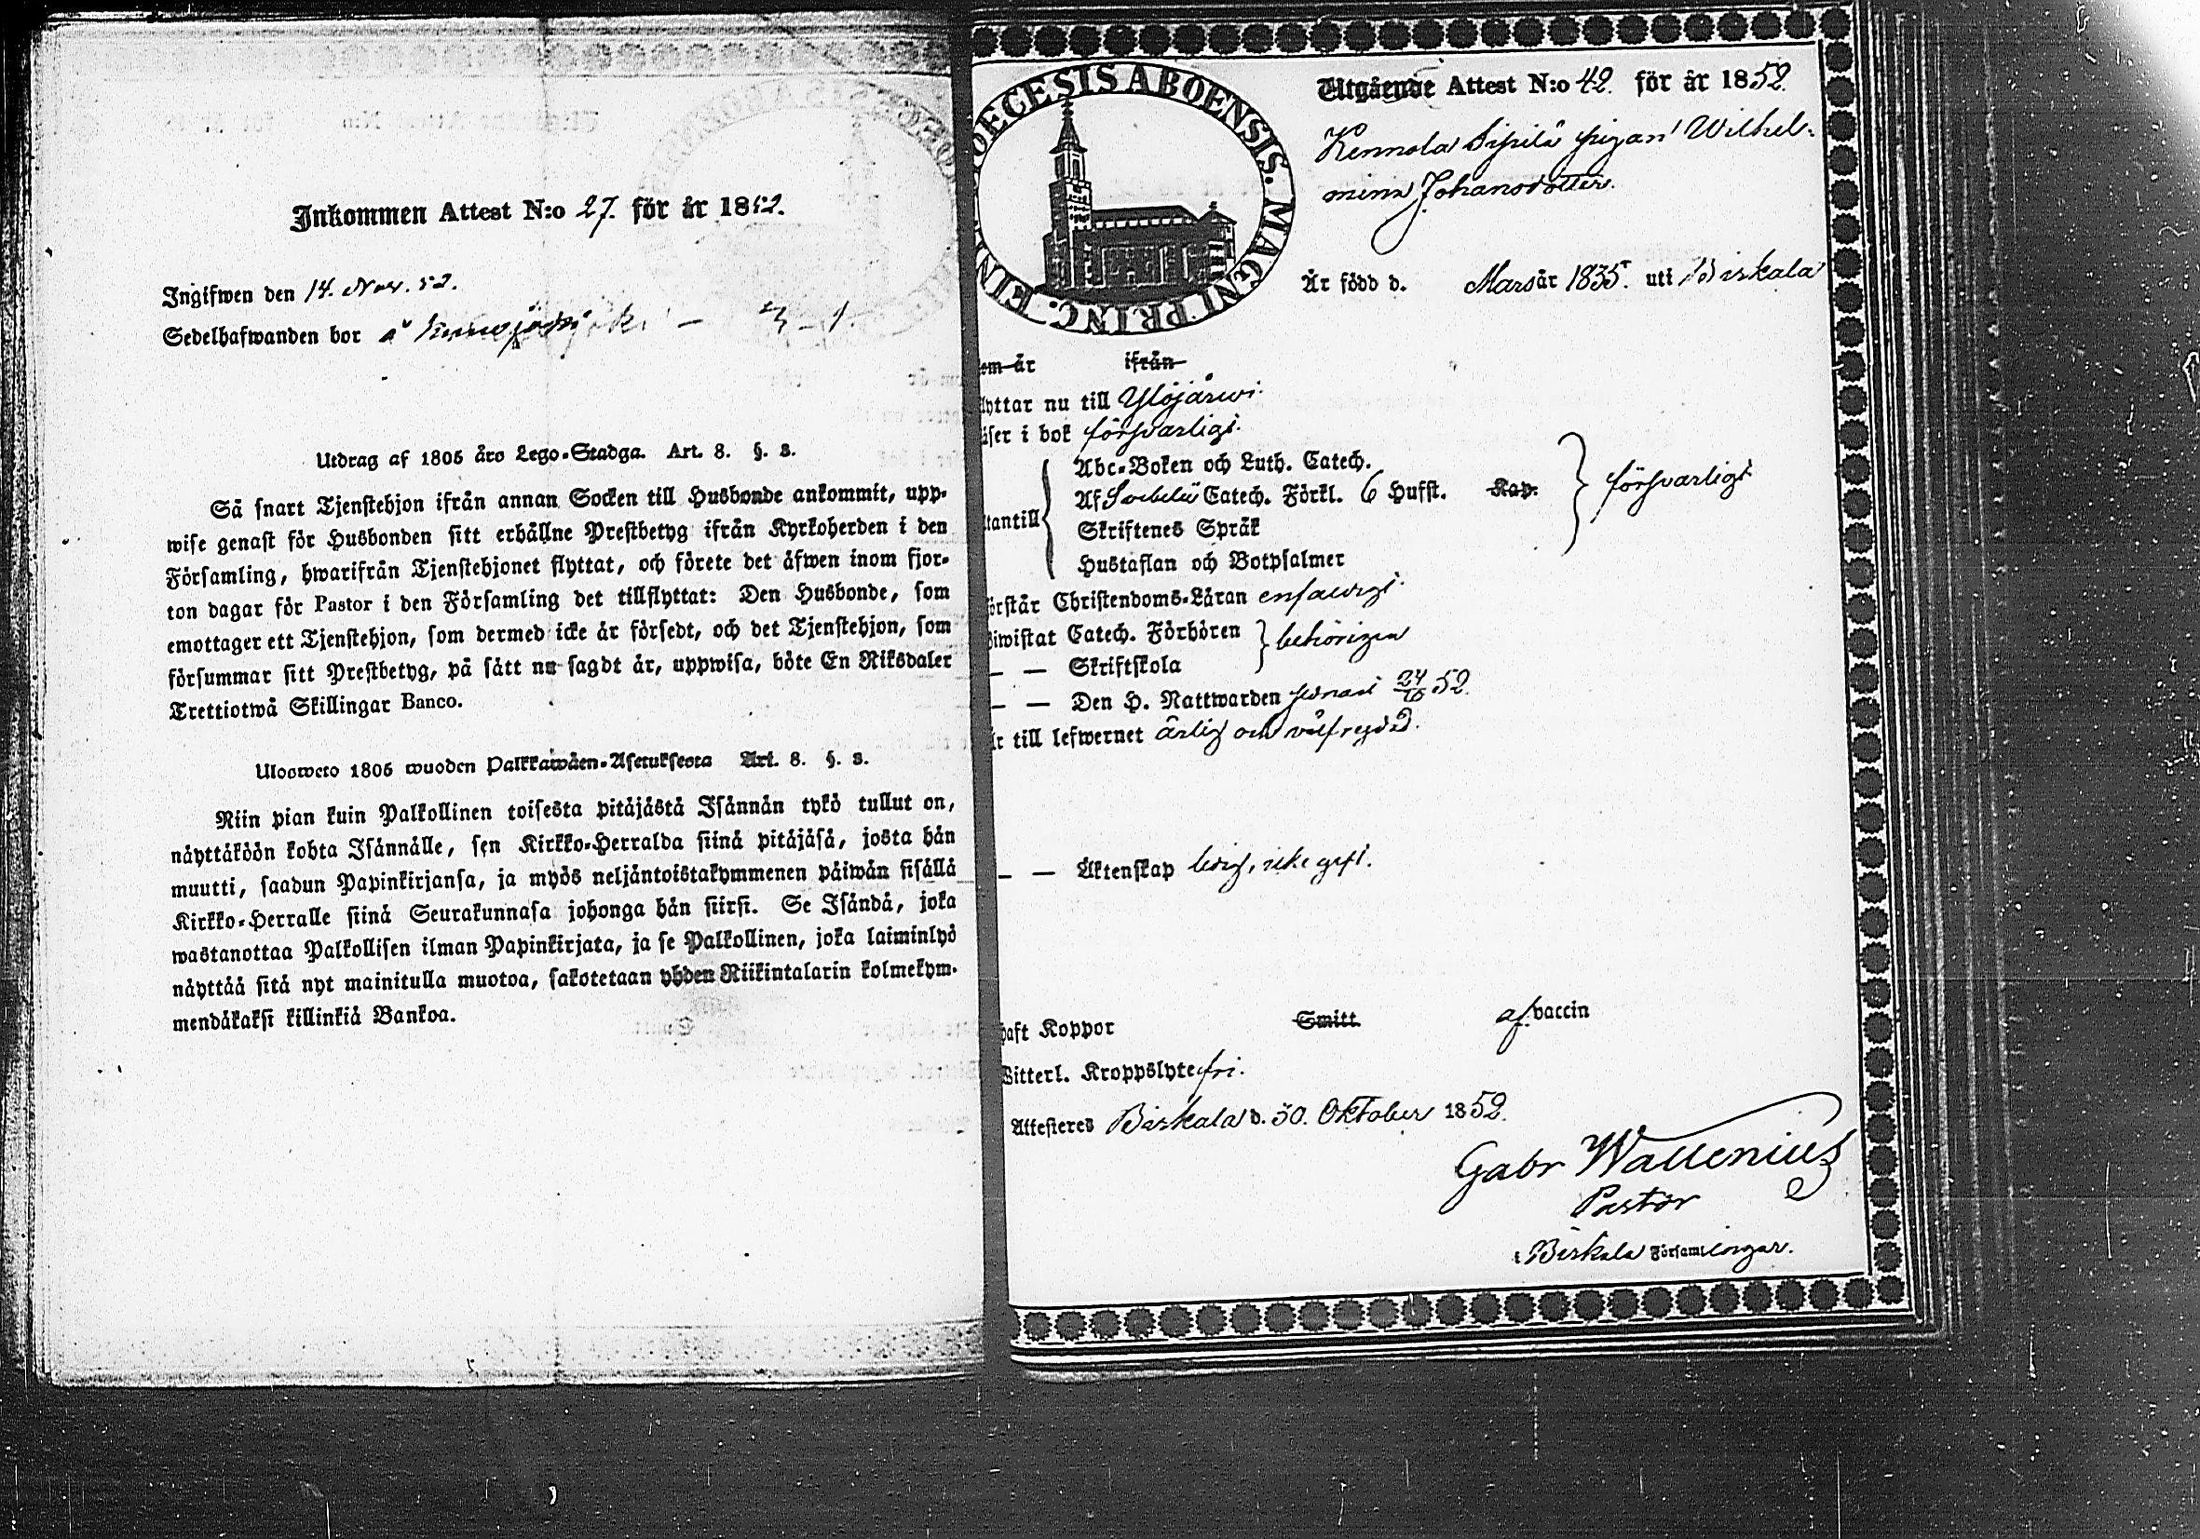 Inkommen Attest N:o 27. för år 1852.
Ingifwen den 14. Nov. 52.
Sedelhafwanden bor å
Utdrag af 1805 års Lego-Stadga. Art. 8. §. 3.
Så snart Tjenstehjon ifrån annan Socken till Husbonde ankommit, upp-
wise genast för Husbonden sitt erhållne Prestbetyg ifrån Kyrkoherden i den
Församling, hwarifrån Tjenstehjonet flyttat, och förete det äfwen inom fjor-
ton dagar för Pastor i den Församling det tillflyttat: Den Husbonde, som
emottager ett Tjenstehjon, som dermed icke är försedt, och det Tjenstehjon, som
försummar sitt Prestbetyg, på sätt nu sagdt är, uppwisa, böte En Riksdaler
Trettiotwå Skillingar Banco.
Ulosweto 1805 wuoden Palkkawäen-Asetuksesta Art. 8. §. 3.
Niin pian kuin Palkollinen toisesta pitäjästä Isännän tykö tullut on,
näyttäköön kohta Isännälle, sen Kirkko-Herralda siinä pitäjäsä, josta hän
muutti, saadun Papinkirjansa, ja myös neljäntoistakymmenen päiwän sisällä
Kirkko-Herralle siinä Seurakunnasa johonga hän siirsi. Se Isändä, joka
wastanottaa Palkollisen ilman Papinkirjata, ja se Palkollinen, joka laiminlyö
näyttää sitä nyt mainitulla muotoa, sakotetaan yhden Riikintalarin kolmekym-
mendäkaksi killinkiä Bankoa.
OECESIS ABOENSIS. MAGNI PRINC. FIN
Utgående Attest N:o 42. för år 1852.
Kennola Sipilä pigan Wilhel-
mina Johansdotter.
Är född d. Mars år 1835. uti Birkala
om år ifrån
lyttar nu till Ylöjärwi.
äser i bok försvarligt.
Abc-Boken och Luth. Catech.
Af Svebelii Catech. Förkl. 6 Hufst. Kap. försvarligt
tantill
Skriftenes Språk
Hustaflan och Botpsalmer
örstår Christendoms-Läran enfaldigt.
iwistat Catech. Förhören behörigen
— — Skriftskola
— — Den H. Nattwarden senast 24/10 52.
är till lefwernet ärlig och välfrejdad.
— — Äktenskap ledig, icke gift.
haft Koppor Smitt. af vaccin
Witterl. Kroppslyte fri.
Attesteres Birkala d. 30. Oktober 1852.
Gabr Wallenius
Pastor
i Birkala Församlingar.